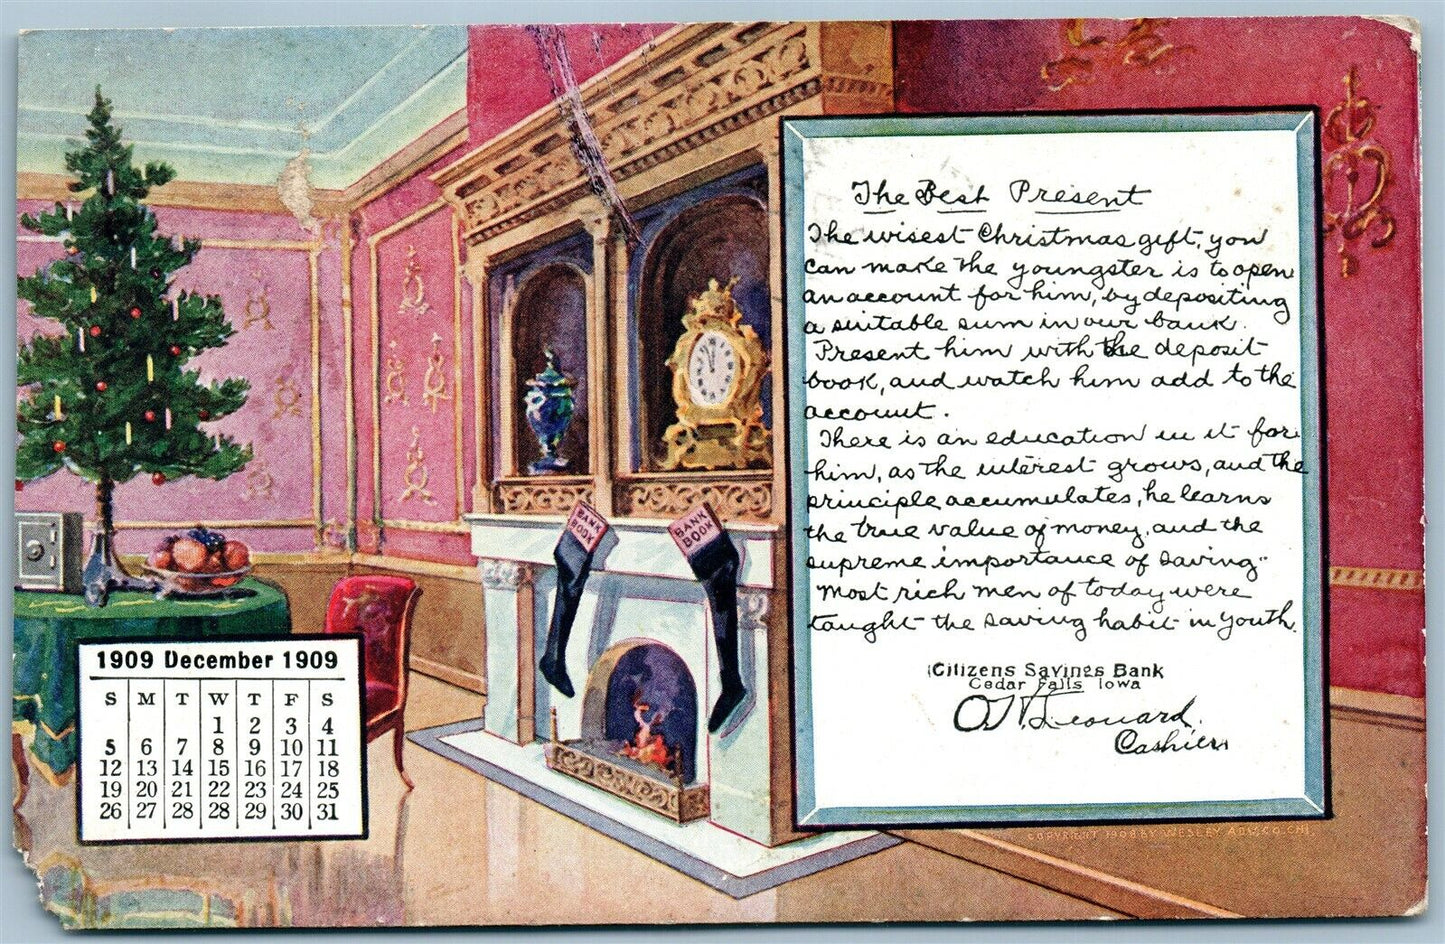 The Best Present
The wisest Christmas gift, you
can make the youngster is to open
an account for him, by depositing
a suitable sum in our bank.
Present him with the deposit
book, and watch him add to the
account.
There is an education in it for
him, as the interest grows, and the
principle accumulates, he learns
the true value of money, and the
supreme importance of saving"
Most rich men of today were
taught the saving habit in youth.
Citizens Savings Bank
Cedar Falls Iowa
Leouard.
Cashier
BANK
BOOK
BANK
BOOK
1909 December 1909
S M T W T F S
1 2 3 4
5 6 7 8 9 10 11
12 13 14 15 16 17 18
19 20 21 22 23 24 25
26 27 28 28 29 30 31
COPYRIGHT 1908 BY WESLEY ADV. CO. CHI.